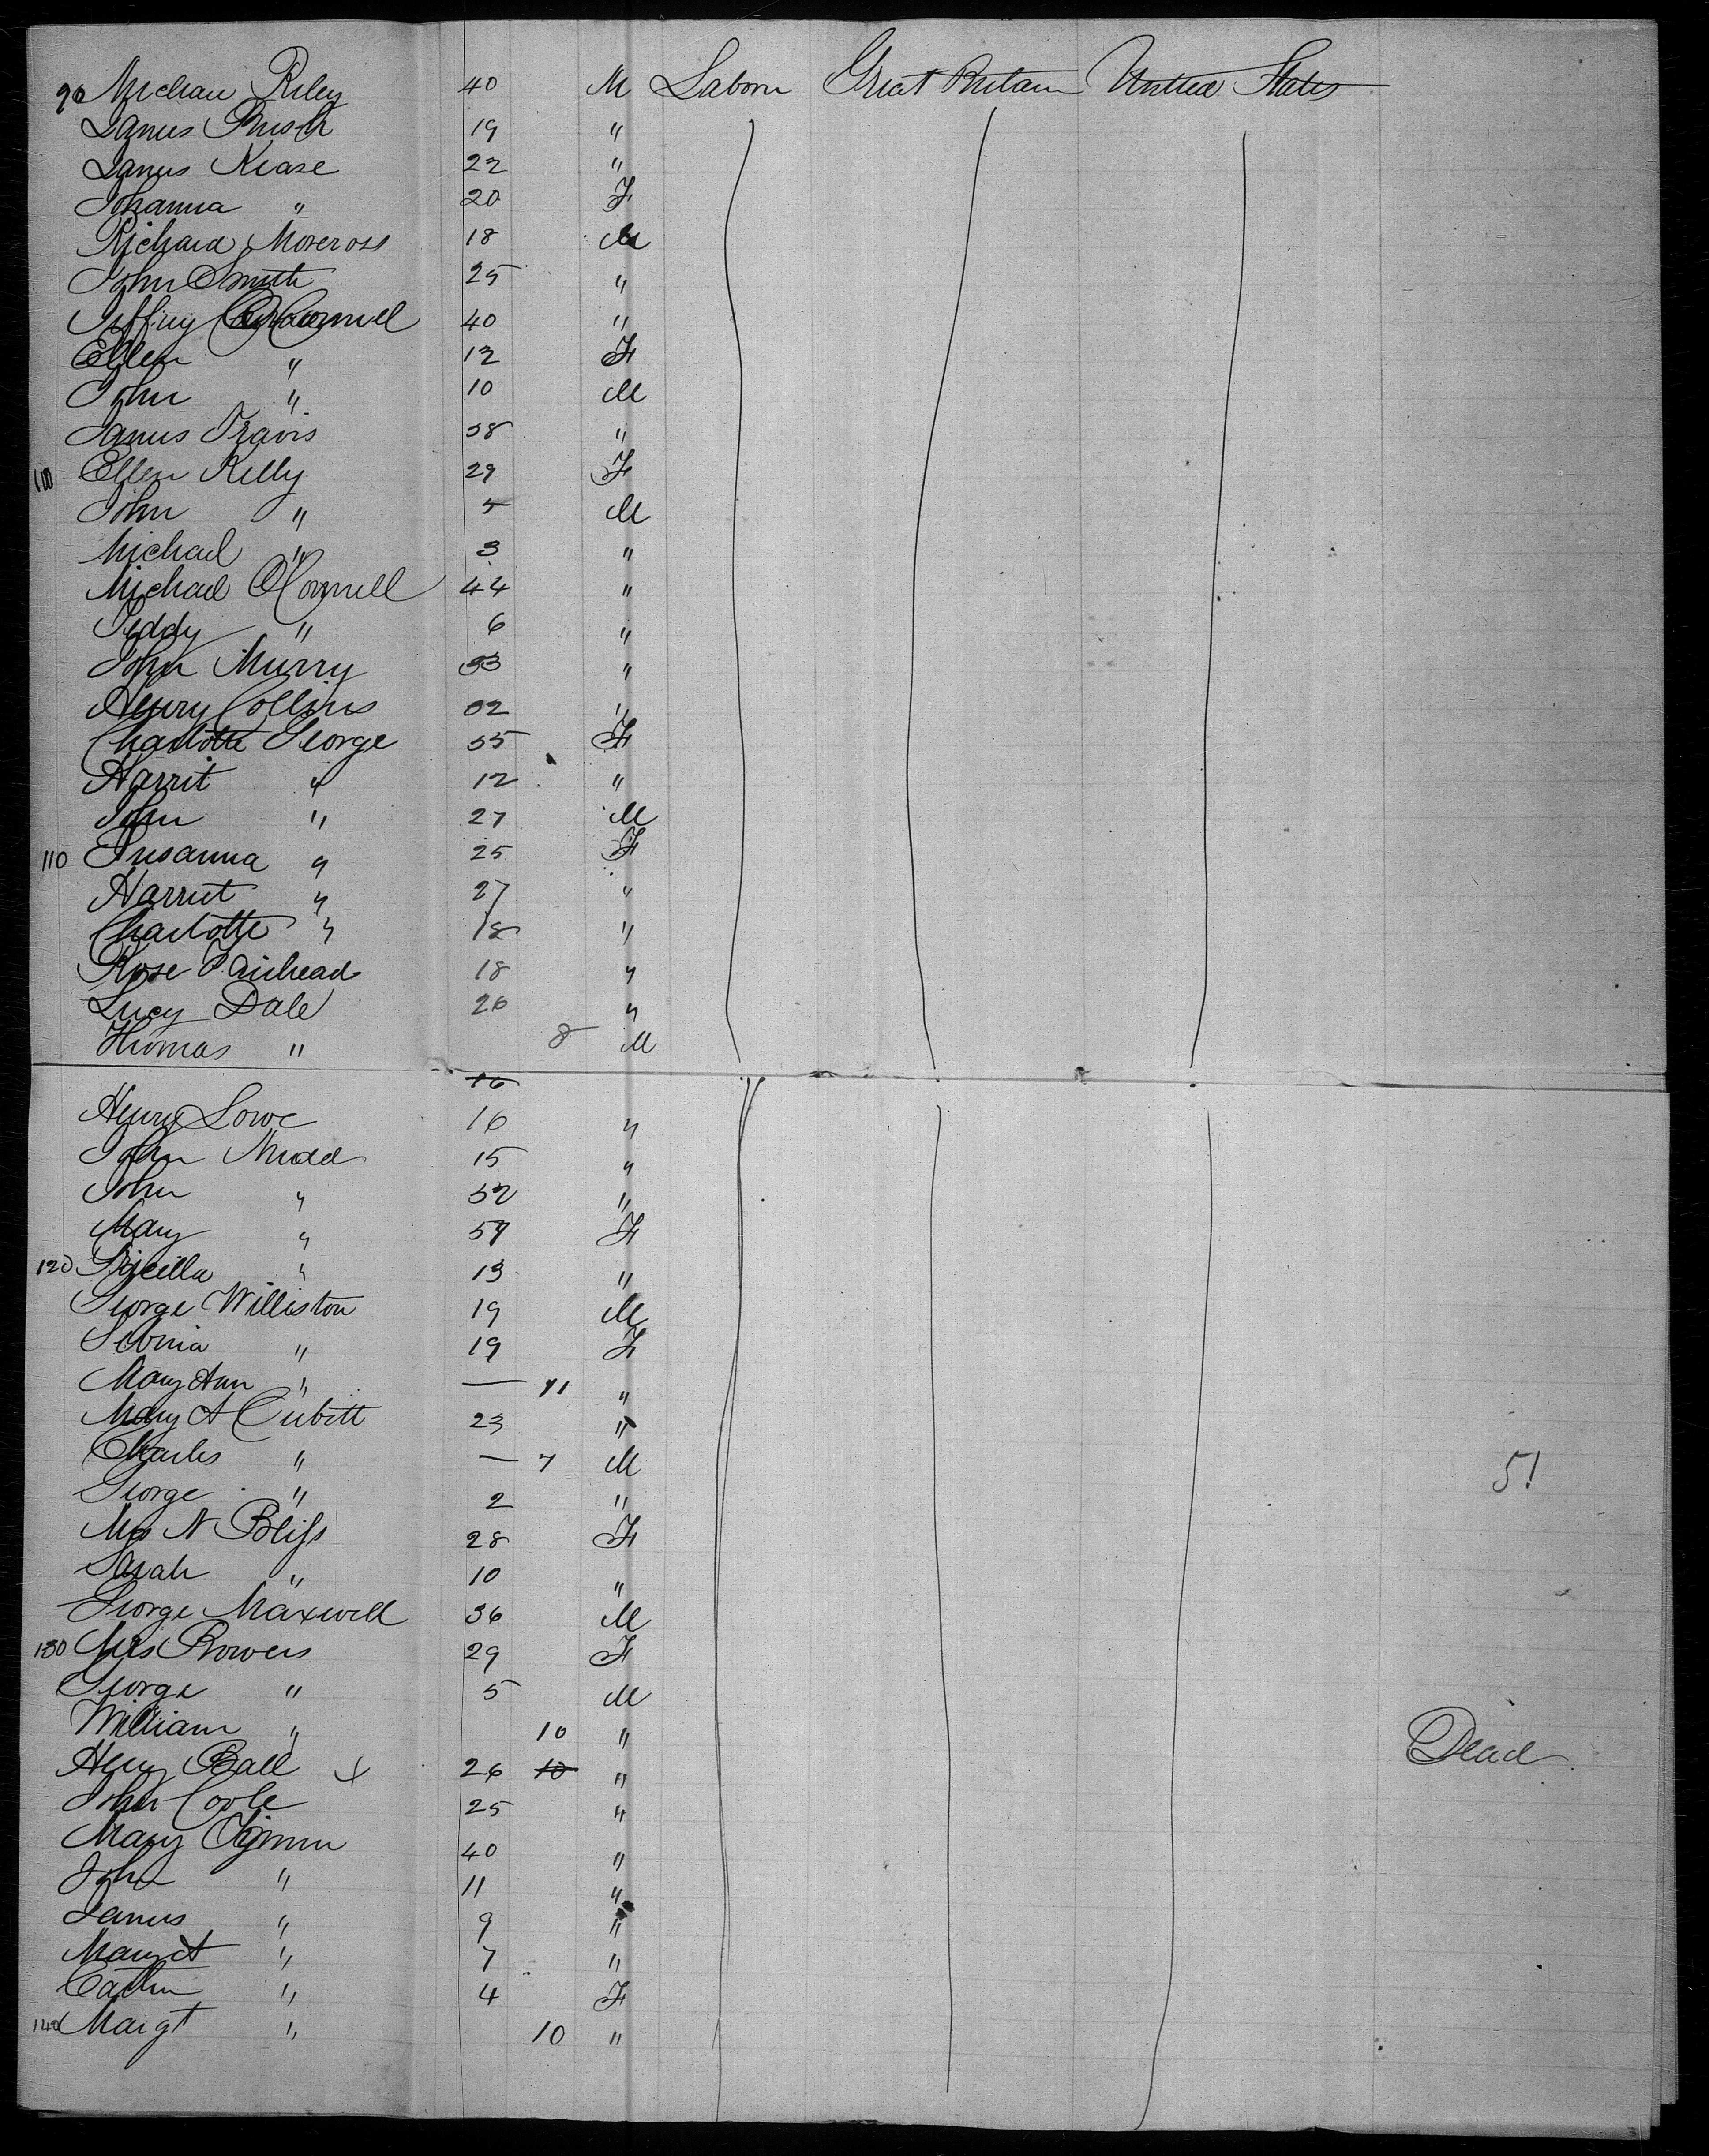 90 Michael Riley 40 M Laborer Great Britain United States
James Rush 19 "
James Kease 22 "
Johanna " 20 F
Richard Morcross 18 M
John Smith 25 "
Jeffrey 40 "
Ellen " 12 F
John " 10 M
James Travis 38 "
100 Ellen Kelly 29 F
John " 5 M
Michael " 3 "
Michael OConnell 44 "
Teddy " 6 "
John Murry 33 "
Henry Collins 32 "
Charlotte George 55 F
Harrit " 12 "
John " 27 M
110 Susanna " 25 F
Harriet " 27 "
Charlotte " 18 "
Rose Fairhead 18 "
Lucy Dale 26 "
Thomas " 8 M
16
Henry Lowe 16 "
John Mudd 15 "
John " 52 "
Mary " 54 F
120 " 13 "
George Williston 19 M
" 19 F
Mary Ann " — 11 "
Mary A Cubitt 23 "
Charles " — 7 M 5!
George " 2 "
Mrs N Bliss 28 F
Sarah " 10 "
George Maxwell 36 M
130 Mrs Bowers 29 F
George " 5 M
William " 10 " Dead
Henry Ball x 26 10 "
John Coole 25 "
Mary 40 "
John " 11 "
James " 9 "
" 7 "
" 4 F
140 Margt " 10 "